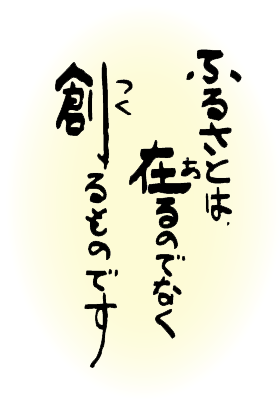 ふるさとは、
在るのでなく
あ
創るものです
つく